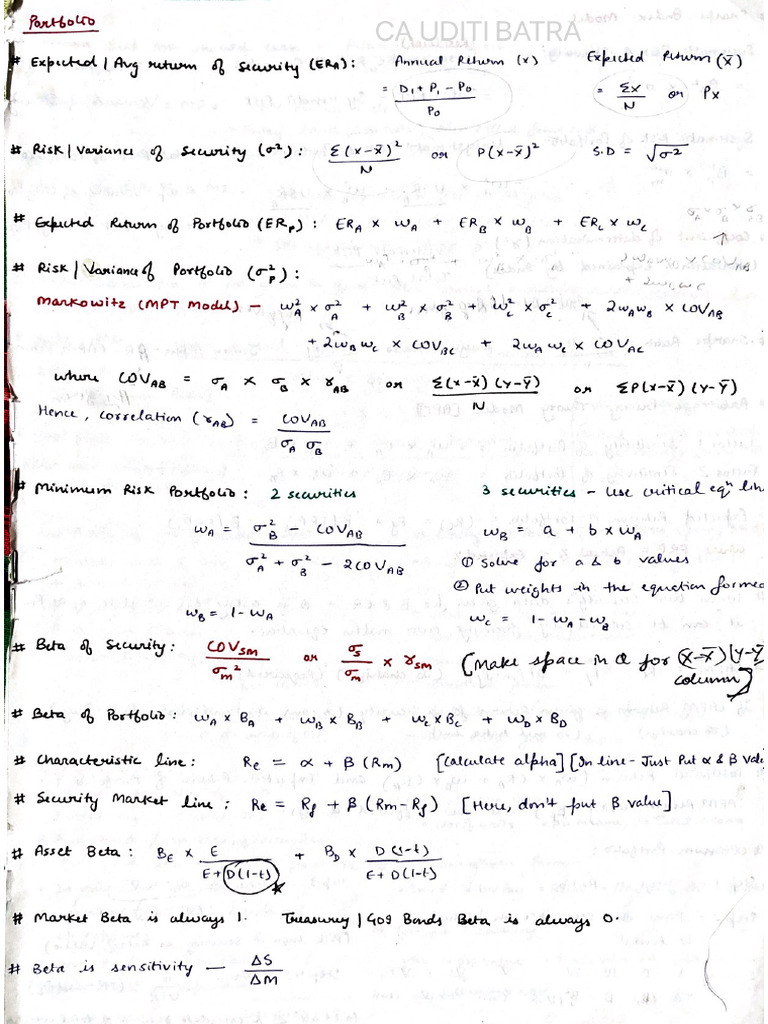 Portfolio
CA UDITI BATRA
# Expected | Avg return of security (ERA) : Annual Return (x) Expected Return (x̄)
= D1 + P1 - P0 / P0 = Σx / N or Px
# Risk | Variance of Security (σ²) : Σ(x-x̄)² / N or P(x-x̄)² S.D = √σ²
# Expected Return of Portfolio (ERp) : ERA x wA + ERB x wB + ERC x wC
# Risk | Variance of Portfolio (σ²p) :
Markowitz (MPT Model) - w²A x σ²A + w²B x σ²B + w²C x σ²C + 2wAwB x COVAB
+ 2wBwC x COVBC + 2wAwC x COVAC
where COVAB = σA x σB x rAB or Σ(x-x̄)(y-ȳ) / N or ΣP(x-x̄)(y-ȳ)
Hence, correlation (rAB) = COVAB / σA σB
# Minimum Risk Portfolio : 2 securities 3 securities - Use critical eqn line
wA = σ²B - COVAB / σ²A + σ²B - 2COVAB wB = a + b x wA
① Solve for a & b values
② Put weights in the equation formed
wB = 1 - wA wC = 1 - wA - wB
# Beta of Security : COVsm / σm² or σs / σm x rsm (Make space in Q for (x-x̄)(y-ȳ) column)
# Beta of Portfolio : wA x BA + wB x BB + wC x BC + wD x BD
# Characteristic line : Re = α + β (Rm) [Calculate alpha] [In line - Just Put α & β val
# Security Market line : Re = Rf + β (Rm - Rf) [Here, don't put β value]
# Asset Beta : BE x E / E + D(1-t) + BD x D(1-t) / E + D(1-t)
# Market Beta is always 1. Treasury | Gog Bonds Beta is always 0.
# Beta is sensitivity — ΔS / ΔM